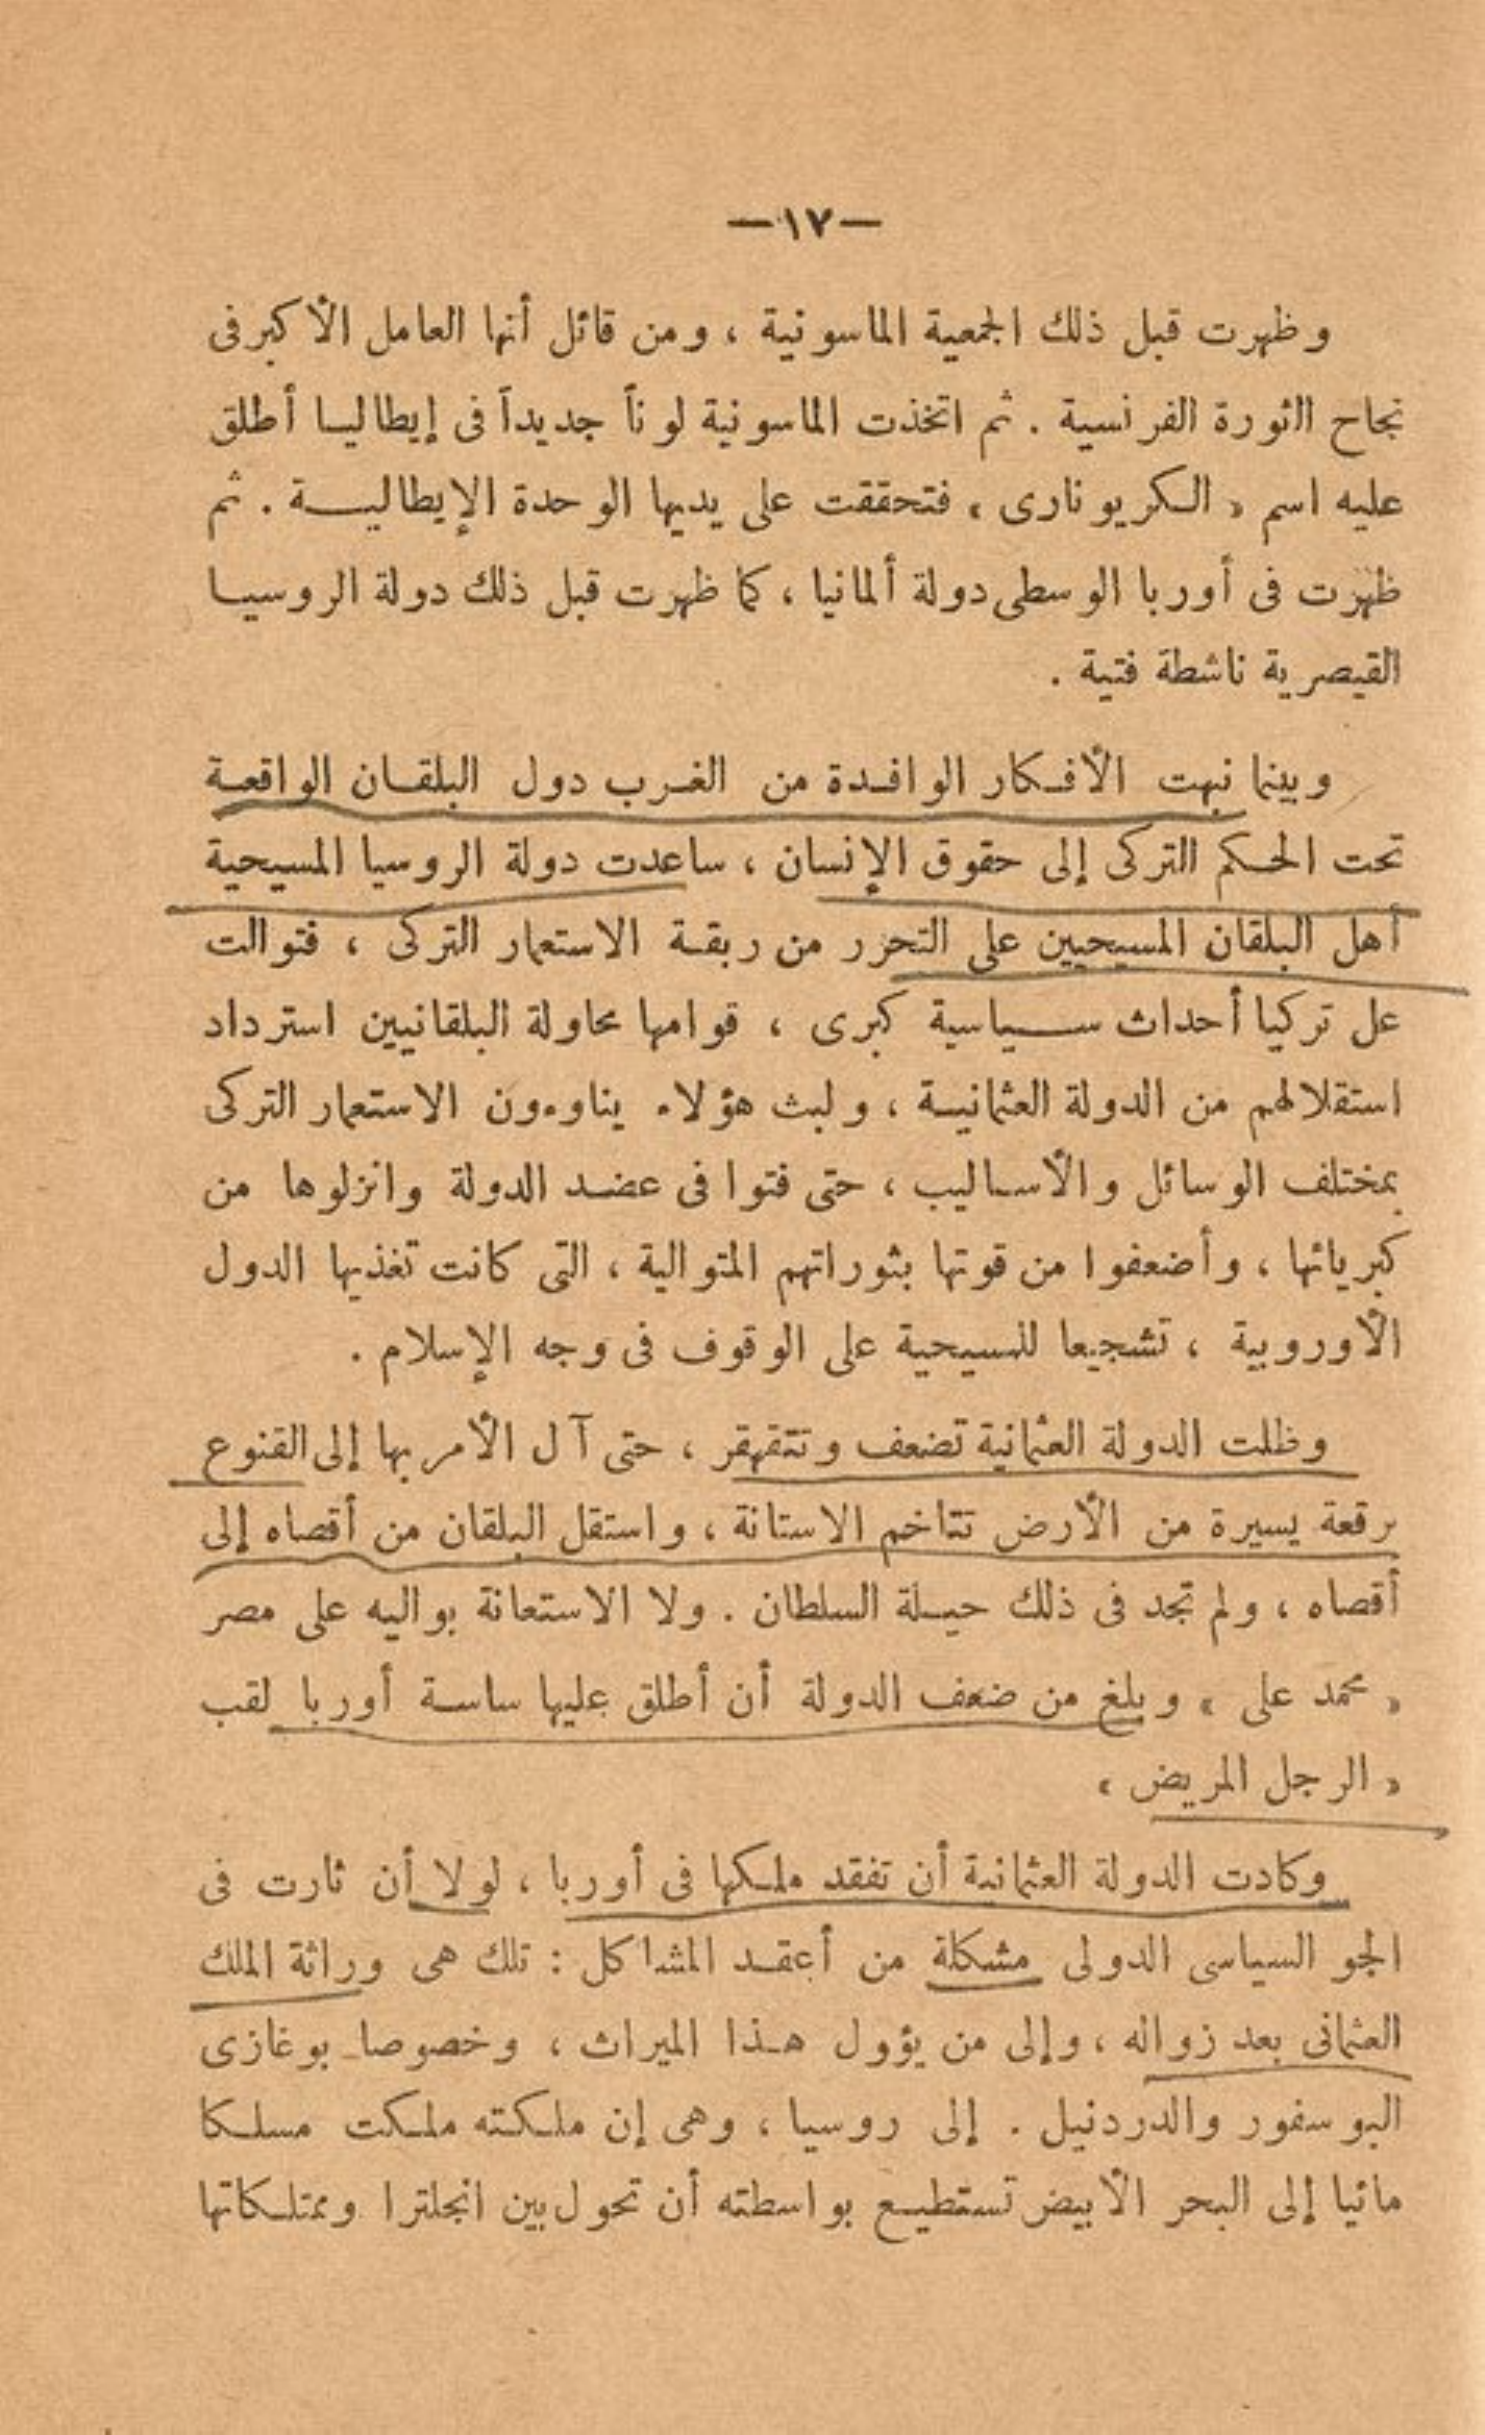 — ١٧ —
وظهرت قبل ذلك الجمعية الماسونية ، ومن قائل أنها العامل الأكبر فى
نجاح الثورة الفرنسية . ثم اتخذت الماسونية لوناً جديداً فى إيطاليا أطلق
عليه اسم « الكريونارى » فتحققت على يديها الوحدة الإيطالية . ثم
ظهرت فى أوربا الوسطى دولة ألمانيا ، كما ظهرت قبل ذلك دولة الروسيا
القيصرية ناشطة فتية .
وبينما نبهت الأفكار الوافدة من الغرب دول البلقان الواقعة
تحت الحكم التركى إلى حقوق الإنسان ، ساعدت دولة الروسيا المسيحية
أهل البلقان المسيحيين على التحرر من ربقة الاستعمار التركى ، فتوالت
عل تركيا أحداث سياسية كبرى ، قوامها محاولة البلقانيين استرداد
استقلالهم من الدولة العثمانية ، ولبث هؤلاء يناوءون الاستعمار التركى
بمختلف الوسائل والأساليب ، حتى فتوا فى عضد الدولة وانزلوها من
كبريائها ، وأضعفوا من قوتها بثوراتهم المتوالية ، التى كانت تغذيها الدول
الأوروبية ، تشجيعا للمسيحية على الوقوف فى وجه الإسلام .
وظلت الدولة العثمانية تضعف وتتقهقر ، حتى آل الأمر بها إلى القنوع
برقعة يسيرة من الأرض تتاخم الاستانة ، واستقل البلقان من أقصاه إلى
أقصاه ، ولم تجد فى ذلك حيلة السلطان . ولا الاستعانة بواليه على مصر
« محمد على » وبلغ من ضعف الدولة أن أطلق عليها ساسة أوربا لقب
« الرجل المريض »
وكادت الدولة العثمانية أن تفقد ملكها فى أوربا ، لولا أن ثارت فى
الجو السياسى الدولى مشكلة من أعقد المشاكل : تلك هى وراثة الملك
العثمانى بعد زواله ، وإلى من يؤول هذا الميراث ، وخصوصا بوغازى
البوسفور والدردنيل . إلى روسيا ، وهى إن ملكته ملكت مسلكا
مائيا إلى البحر الأبيض تستطيع بواسطته أن تحول بين انجلترا وممتلكاتها